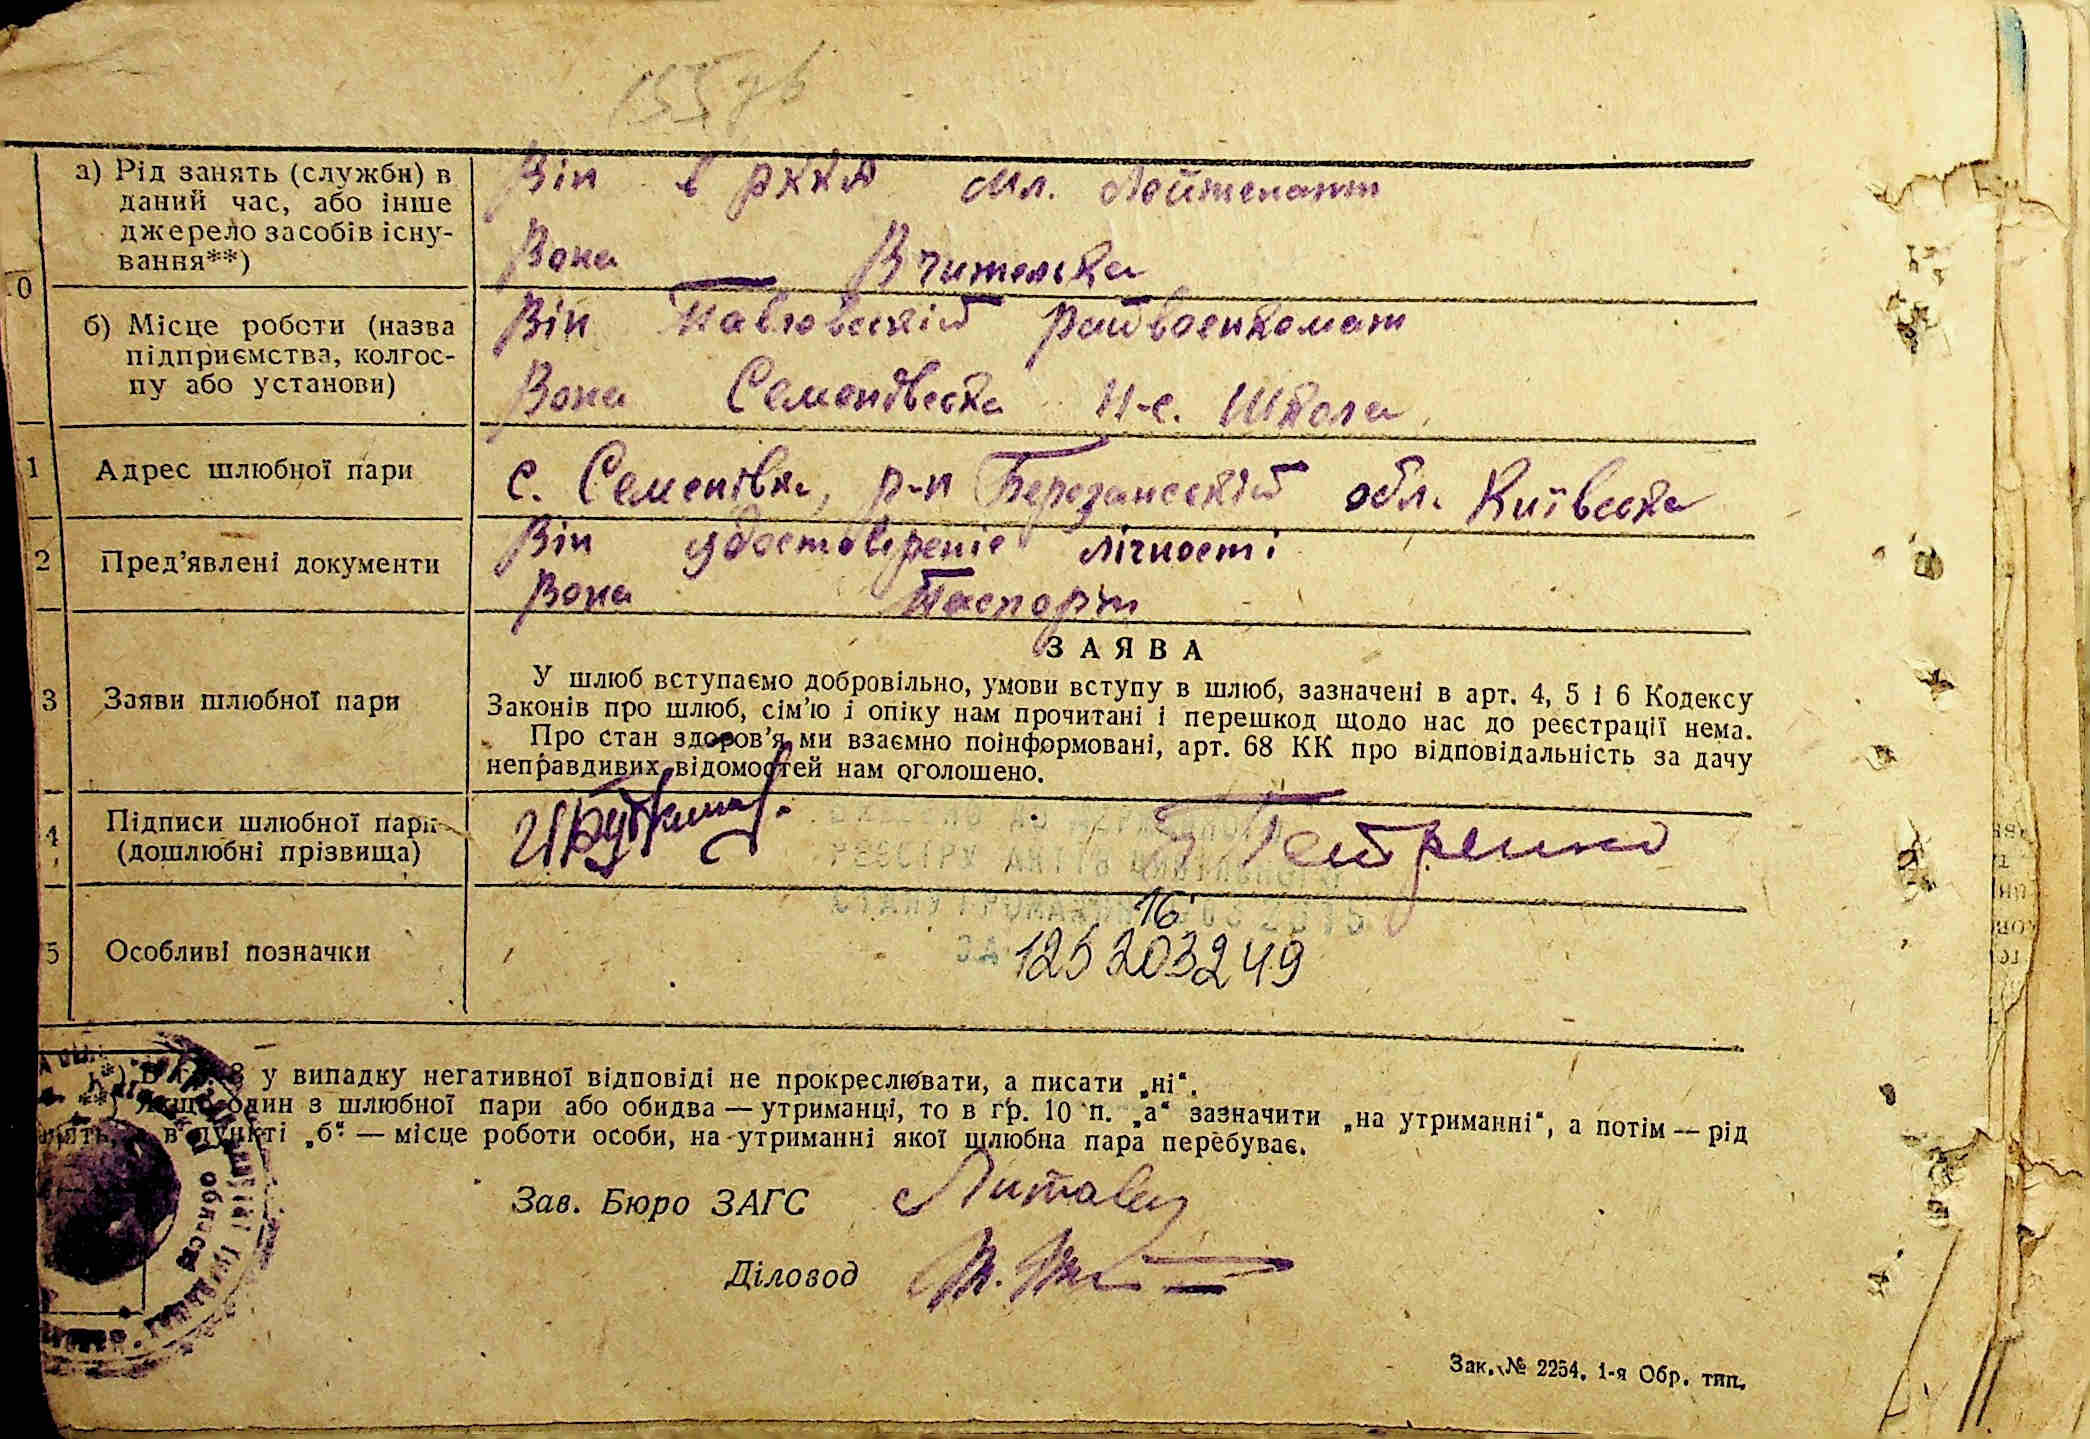 а) Рід занять (служби) в
даний час, або інше
джерело засобів існу-
вання**)
Він в РККА Мл. Лойтенант
Вона Вчителька
0
б) Місце роботи (назва
підприємства, колгос-
пу або установи)
Він райвоенкомат
Вона Семенівська н-с. Школа
1 Адрес шлюбної пари
с. Семенівка, р-н Березанський обл. Київська
2 Пред'явлені документи
Він удостовіреніє лічності
Вона Паспорт
3 Заяви шлюбної пари
ЗАЯВА
У шлюб вступаємо добровільно, умови вступу в шлюб, зазначені в арт. 4, 5 і 6 Кодексу
Законів про шлюб, сім'ю і опіку нам прочитані і перешкод щодо нас до реєстрації нема.
Про стан здоров'я ми взаємно поінформовані, арт. 68 КК про відповідальність за дачу
неправдивих відомостей нам оголошено.
4 Підписи шлюбної пари
(дошлюбні прізвища)
Петренко
РЕЄСТРУ АКТІВ ЦИВІЛЬНОГО
СТАНУ ГРОМАДЯН
16
5 Особливі позначки
ЗА 125203249
у випадку негативної відповіді не прокреслювати, а писати „ні“.
**) Якщо один з шлюбної пари або обидва — утриманці, то в гр. 10 п. „а“ зазначити „на утриманні“, а потім — рід
в пункті „б“ — місце роботи особи, на утриманні якої шлюбна пара перебуває.
Зав. Бюро ЗАГС
Діловод
Зак. № 2254. 1-я Обр. тип.